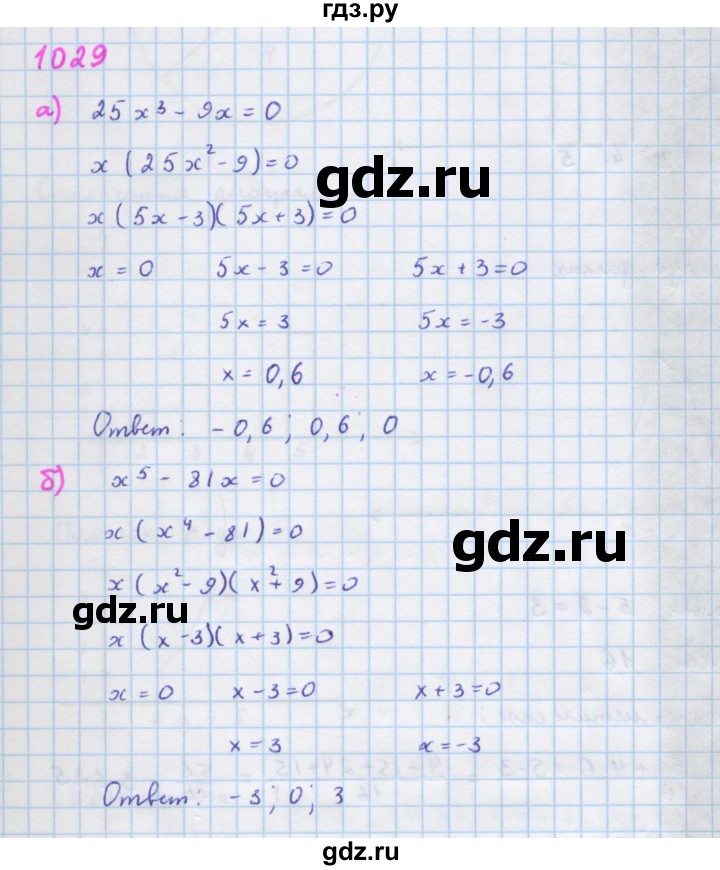 гдз.ру
1029
а) 25x³ - 9x = 0
x(25x² - 9) = 0
gdz.ru
x(5x - 3)(5x + 3) = 0
x = 0 5x - 3 = 0 5x + 3 = 0
5x = 3 5x = -3
x = 0,6 x = -0,6
Ответ: -0,6; 0,6; 0
б) x⁵ - 81x = 0
x(x⁴ - 81) = 0
gdz.ru
x(x² - 9)(x² + 9) = 0
gdz.ru
x(x - 3)(x + 3) = 0
x = 0 x - 3 = 0 x + 3 = 0
x = 3 x = -3
Ответ: -3; 0; 3
gdz.ru